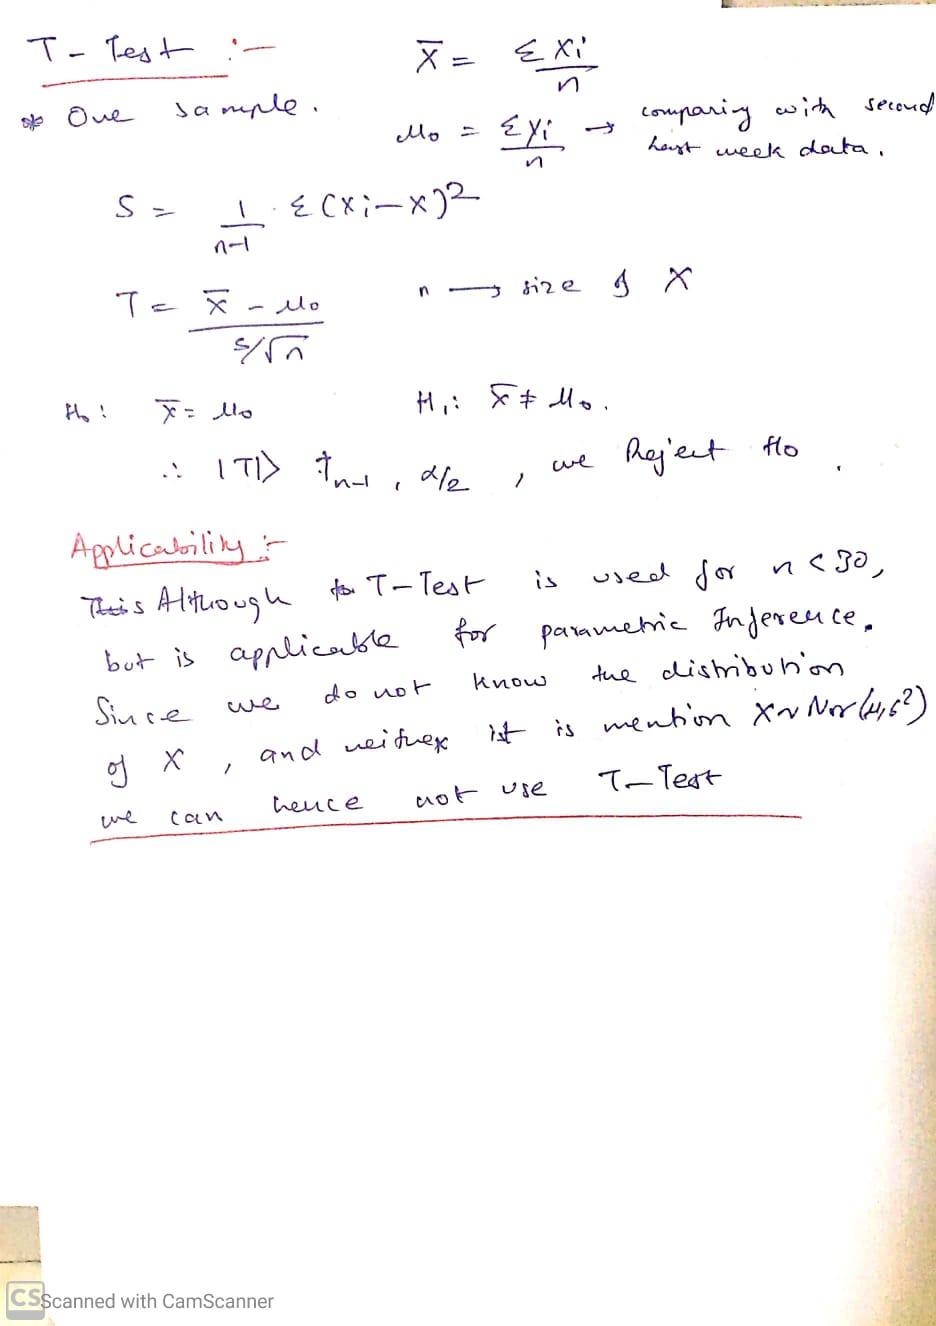 T - Test :-
X̄ = Σ Xi / n
* One sample.
μ₀ = Σ Yi / n → comparing with second
last week data.
S = 1/(n-1) · Σ (Xi - X)²
T = (X̄ - μ₀) / (S/√n)
n → size of X
H₀ : X̄ = μ₀
H₁ : X̄ ≠ μ₀.
∴ |T| > t n-1, α/2 , we Reject H₀.
Applicability :-
Although T-Test is used for n < 30,
but is applicable for parametric Inference.
Since we do not know the distribution
of X , and neither it is mention X ~ Nor (μ, σ²)
we can hence not use T-Test
CS Scanned with CamScanner